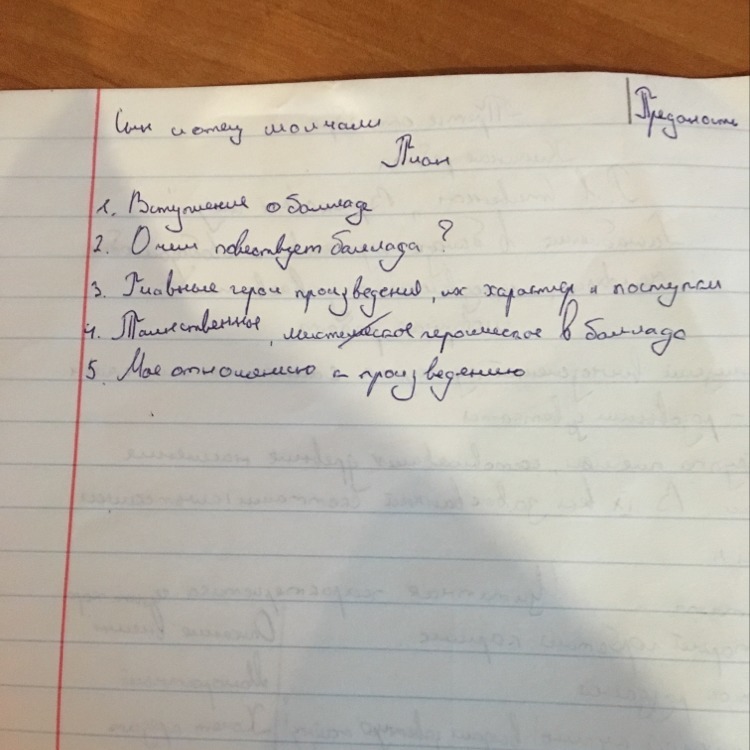 Сын и отец молчали
Преданность
План
1. Вступление о балладе
2. О чем повествует баллада?
3. Главные герои произведения, их характер и поступки
4. Таинственное, мистическое героическое в балладе
5. Мое отношению к произведению